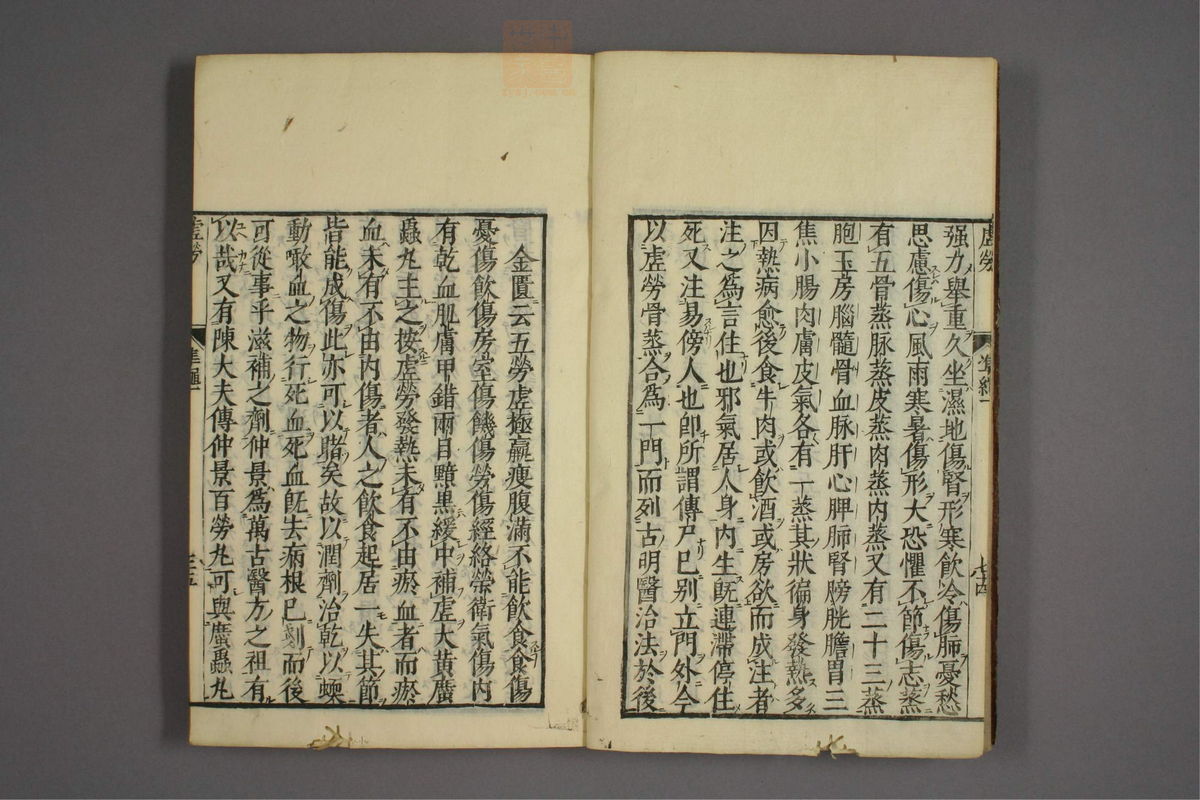 强力舉重久坐濕地傷腎形寒飲冷傷肺憂愁
思慮傷心風雨寒暑傷形大恐懼不節傷志蒸
有五骨蒸脉蒸皮蒸肉蒸内蒸又有二十三蒸
胞玉房腦髓骨血脉肝心脾肺腎膀胱膽胃三
焦小腸肉膚皮氣各有一蒸其狀徧身發熱多
因熱病愈後食牛肉或飲酒或房欲而成注者
注之爲言住也邪氣居人身内生既連滯停住
死又注易傍人也卽所謂傳尸巳别立門外今
以虛勞骨蒸合爲一門而列古明醫治法於後
虛勞
凖繩一
七十四
金匱云五勞虛極羸瘦腹滿不能飲食食傷
憂傷飲傷房室傷饑傷勞傷經絡榮衛氣傷内
有乾血肌膚甲錯兩目黯黒緩中補虛大黃䗪
蟲丸主之按虛勞發熱未有不由瘀血者而瘀
血未有不由内傷者人之飲食起居一失其節
皆能成傷此亦可以睹矣故以潤劑治乾以蝡
動噉血之物行死血死血既去病根已剗而後
可從事乎滋補之劑仲景爲萬古醫方之祖有
以哉又有陳大夫傳仲景百勞丸可與䗪蟲丸
虛勞
凖繩一